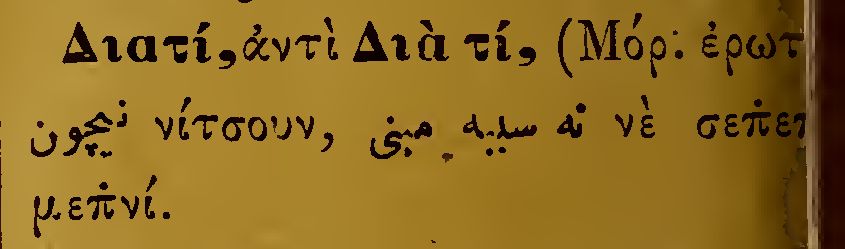 Διατί, ἀντὶ Διὰ τί, (Μόρ: ἐρωτ
نیچون νίτσουν, نه سببه مبنی νὲ σεπ̇επ
μεπ̇νί.